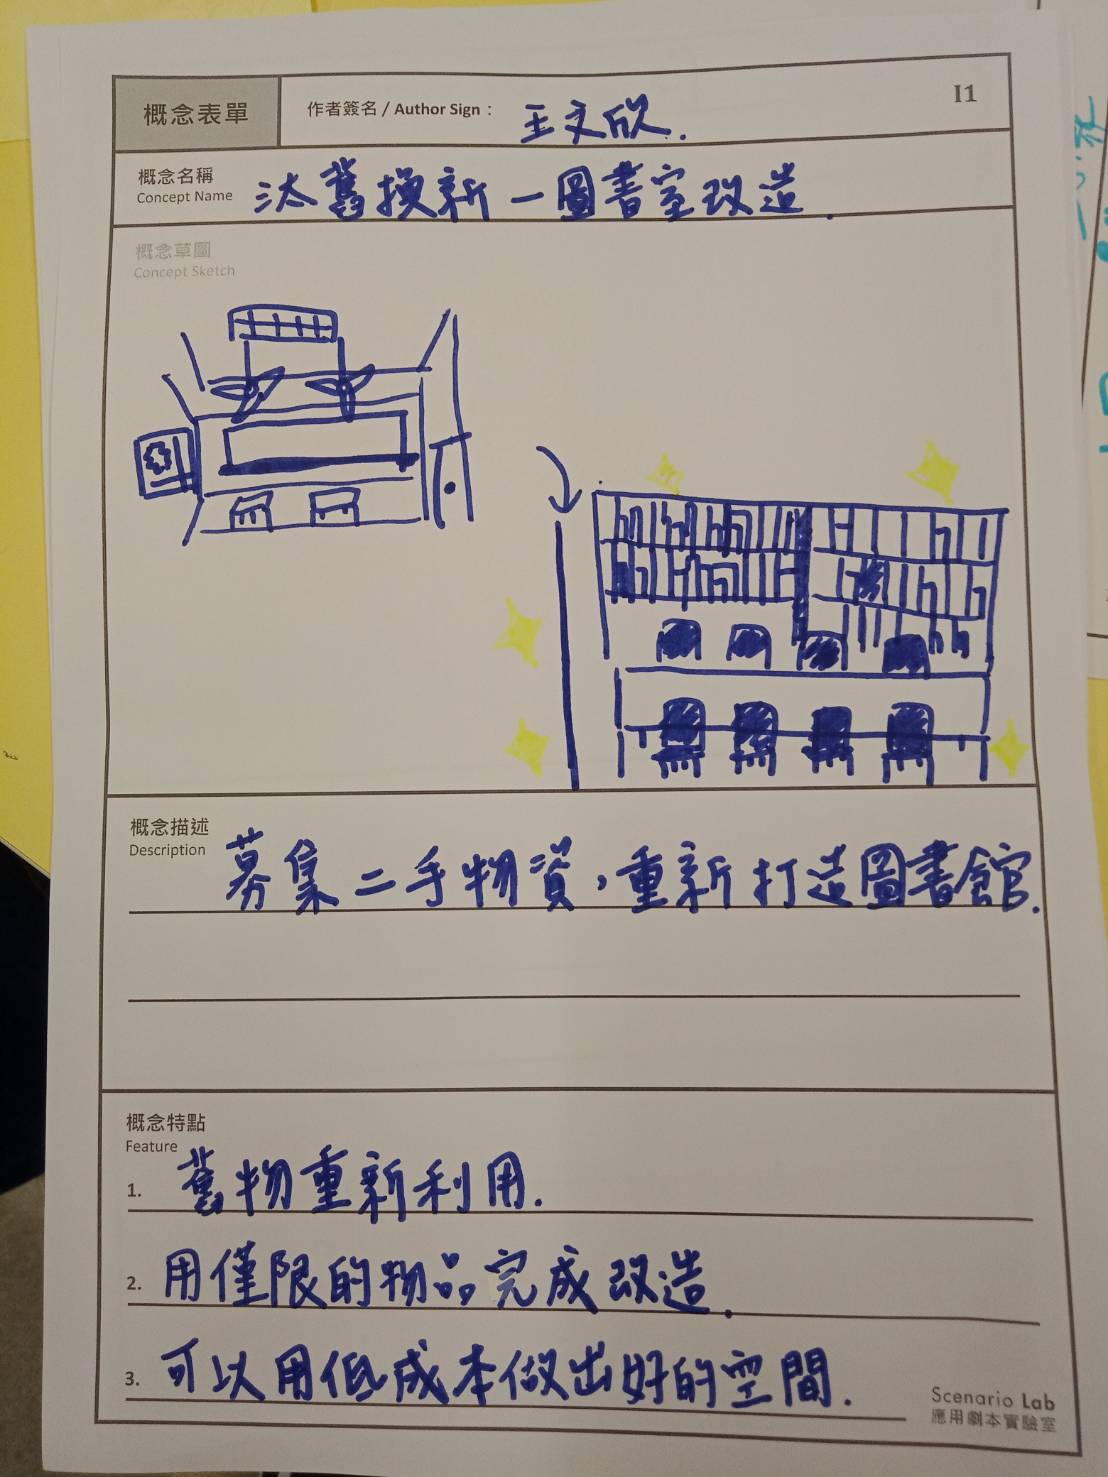 概念表單
作者簽名 / Author Sign：王文欣.
I1
概念名稱
Concept Name
汰舊換新－圖書室改造.
概念草圖
Concept Sketch
概念描述
Description
募集二手物資，重新打造圖書館.
概念特點
Feature
1. 舊物重新利用.
2. 用僅限的物品完成改造.
3. 可以用低成本做出好的空間.
Scenario Lab
應用劇本實驗室